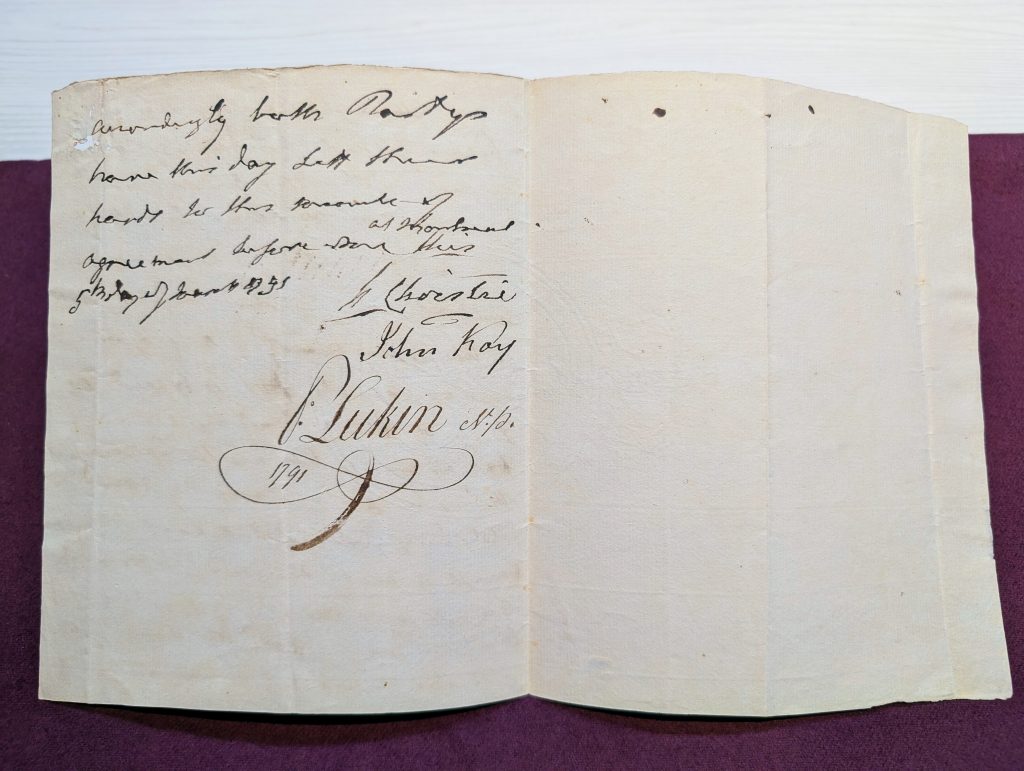 accordingly both Partys
have this day Sett there
hands to this
at Montreal
agreement before done this
5th day of 1791
Christie
John Kay
P. Lukin N.P.
1791